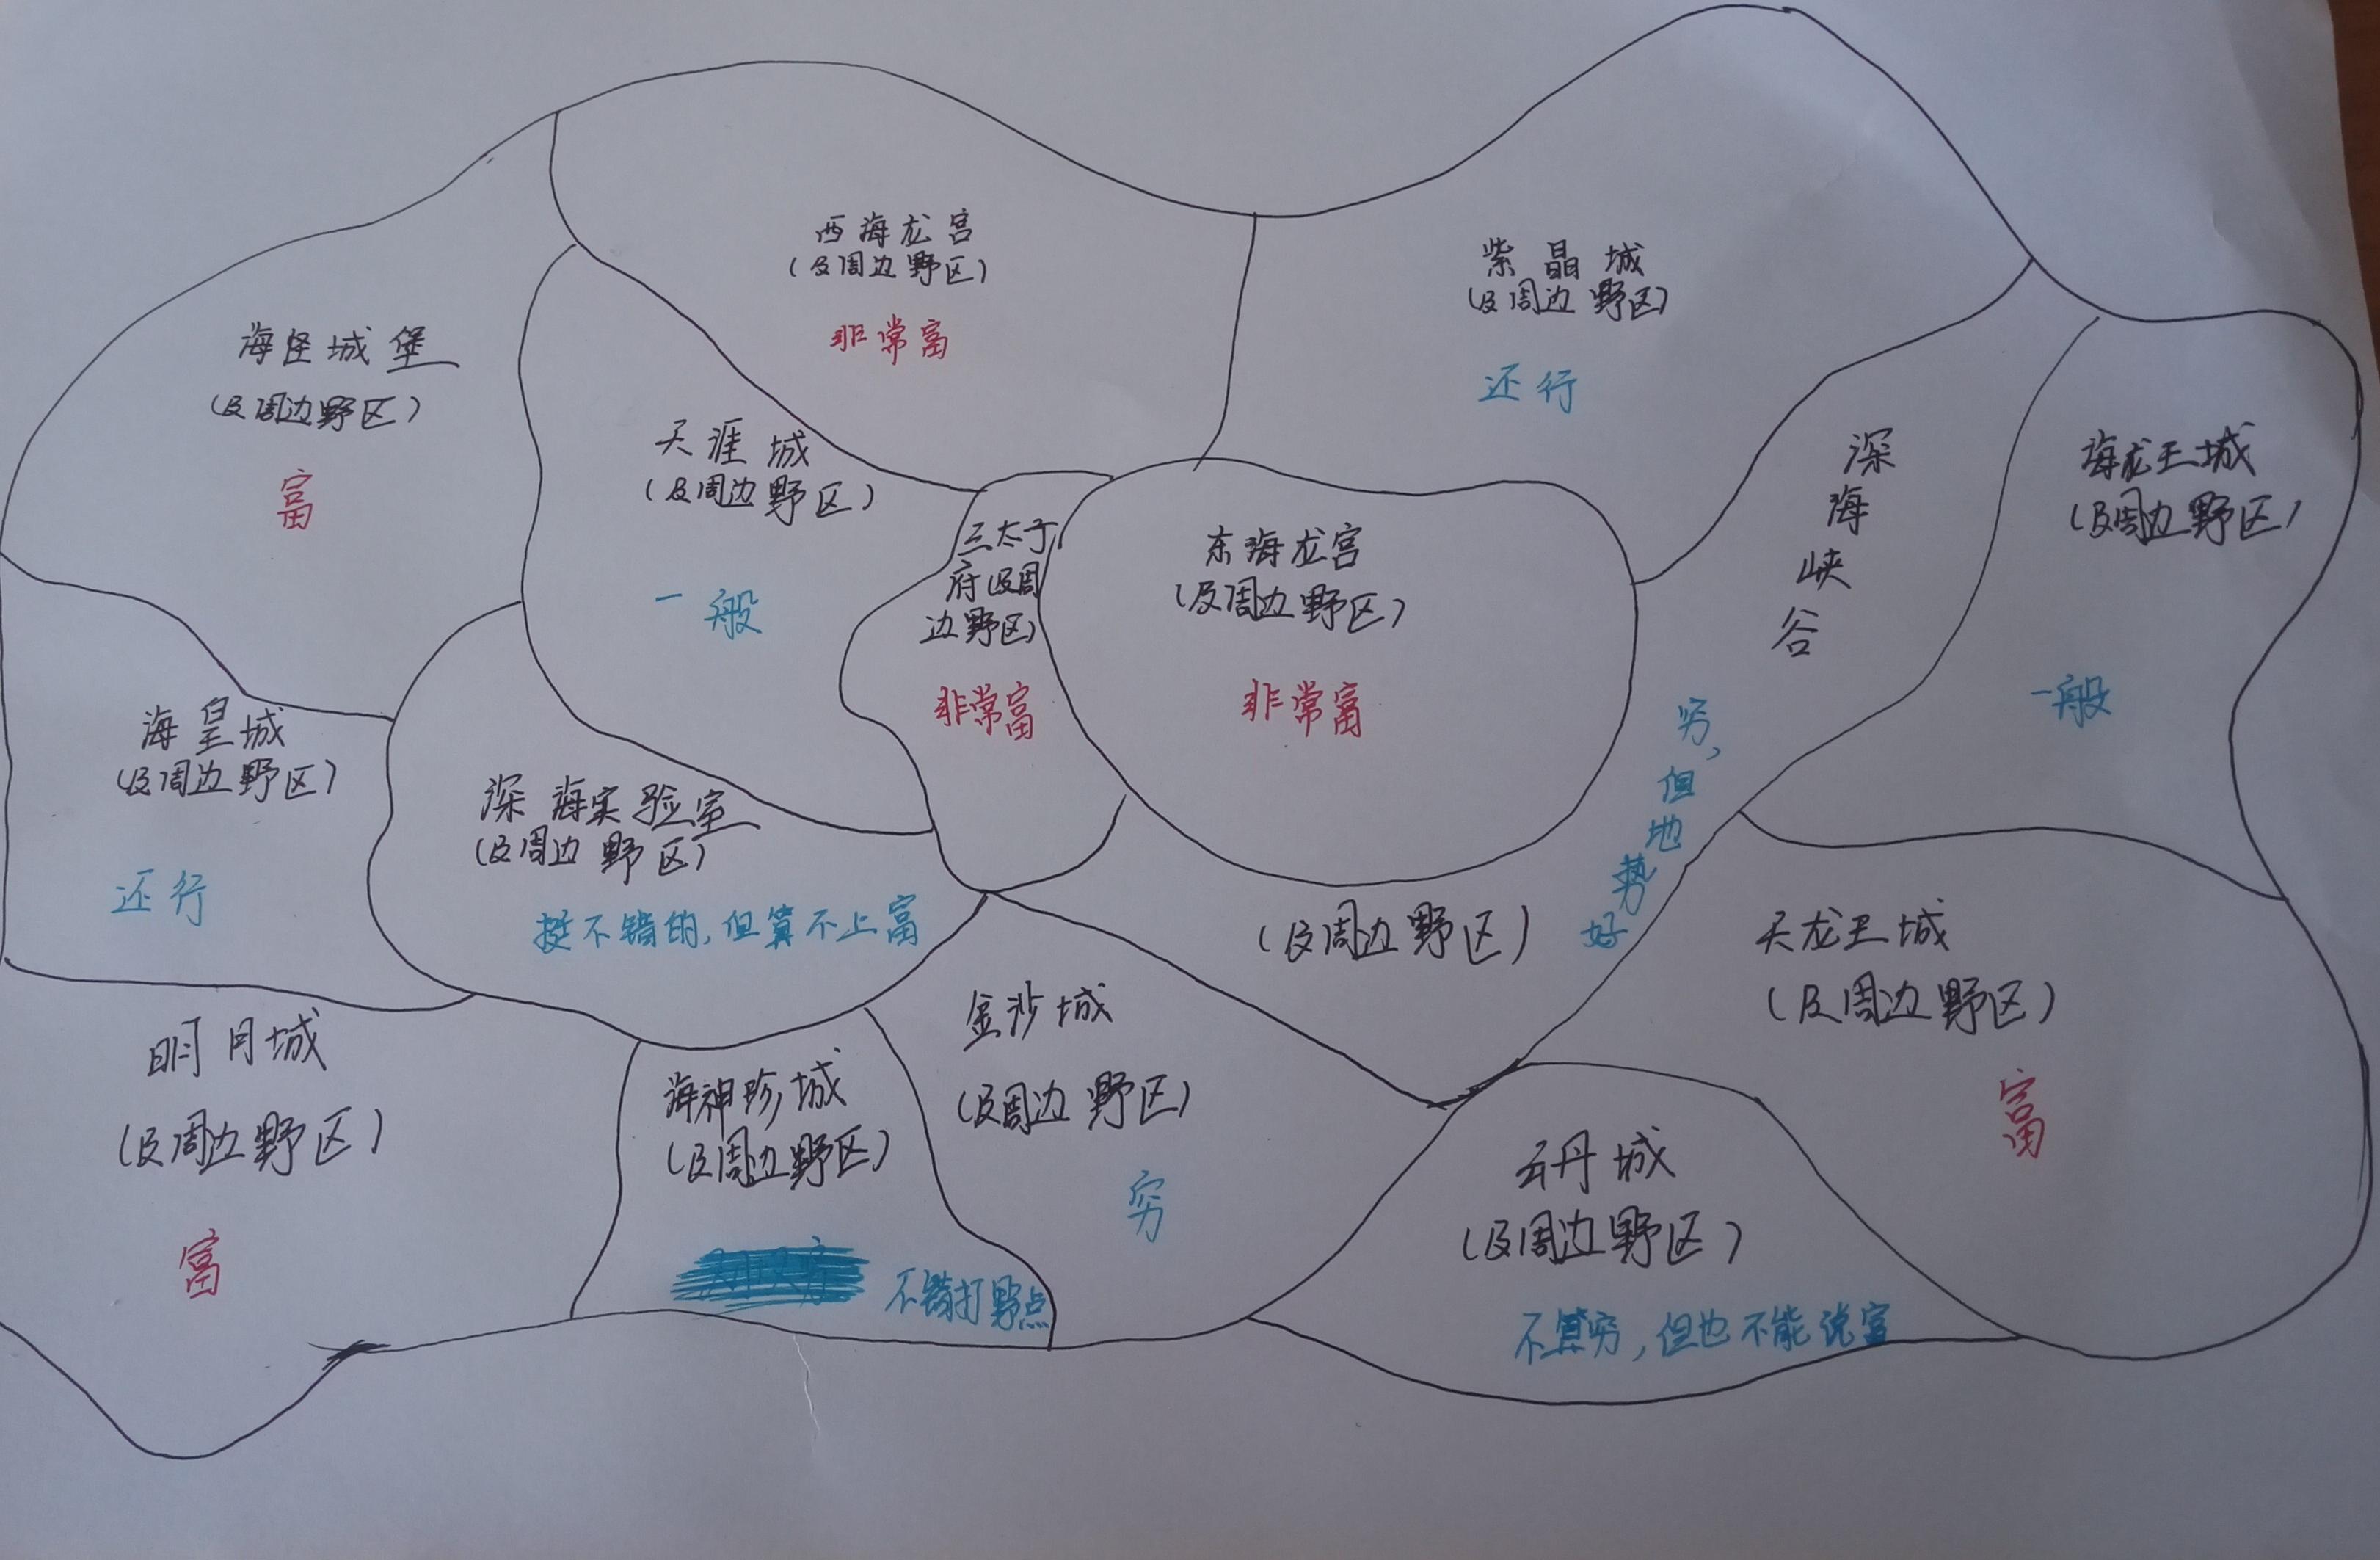 西海龙宫
(及周边野区)
非常富
紫晶城
(及周边野区)
还行
海怪城堡
(及周边野区)
富
天涯城
(及周边野区)
一般
三太子
府及周
边野区)
非常富
东海龙宫
(及周边野区)
非常富
深
海
峡
谷
(及周边野区)
穷,
但
地
势
好
海龙王城
(及周边野区)
一般
海皇城
(及周边野区)
还行
深海实验室
(及周边野区)
挺不错的,但算不上富
天龙王城
(及周边野区)
富
明月城
(及周边野区)
富
海神珍城
(及周边野区)
不错打野点
金沙城
(及周边野区)
穷
云丹城
(及周边野区)
不算穷,但也不能说富